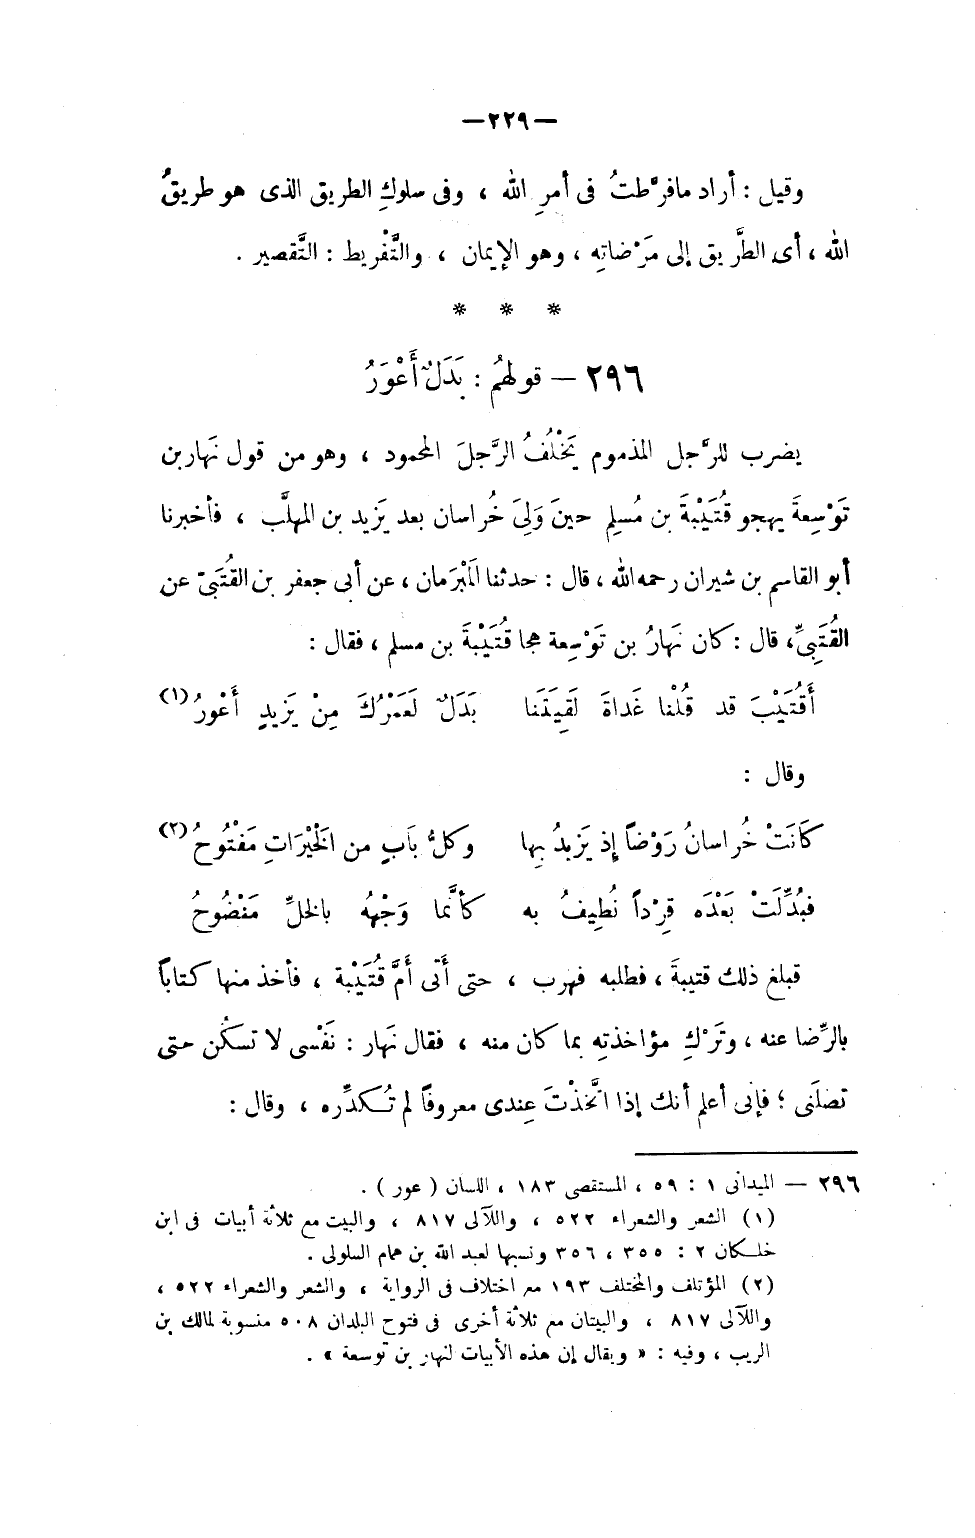 —٢٢٩—
وقيل : أراد مافرَّطتُ فى أمرِ الله ، وفى سلوكِ الطريق الذى هو طريقُ
الله ، أى الطَّريق إلى مَرْضاتِه ، وهو الإيمان ، والتَّفْريط : التَّقصير .
* * *
٢٩٦ — قولهُم : بَدَلٌ أَعْوَرُ
يضرب للرَّجل المذموم يَخْلُفُ الرَّجلَ المحمود ، وهو من قول نَهار بن
تَوْسِعةَ يهجو قُتَيْبةَ بن مُسلِم حينَ وَلِىَ خُراسان بعد يَزيد بن المهلَّب ، فأخبرنا
أبو القاسم بن شيران رحمه الله ، قال : حدثنا المَبْرَمان ، عن أبى جعفر بن القُتَبىّ عن
القُتَبِىِّ، قال : كان نَهارُ بن تَوْسِعة هجا قُتَيْبةَ بن مسلم ، فقال :
أَقُتَيْبَ قد قُلْنا غَداةَ لَقِيتَنا بَدَلٌ لَعَمْرُكَ مِنْ يَزيدٍ أَعْورُ (١)
وقال :
كَانَتْ خُراسانُ رَوْضاً إذ يَزيدُ بها وكلُّ بَابٍ من الخَيْرَاتِ مَفْتُوحُ (٢)
فبُدِّلَتْ بَعْدَه قِرْداً نُطِيفُ به كأنَّما وَجْهُه بالخلِّ مَنْضُوحُ
فبلغ ذلك قتيبةَ ، فطلبه فهرب ، حتى أَتى أُمَّ قُتَيْبة ، فأخذ منها كتاباً
بالرِّضا عنه ، وتَرْكِ مؤاخذتِه بما كان منه ، فقال نَهار : نَفْسى لا تسكُن حتى
تصلَنى ؛ فإنى أعلم أنك إذا اتَّخذْتَ عِندى معروفاً لم تُكدِّره ، وقال :
٢٩٦ — الميدانى ١ : ٥٩ ، المستقصى ١٨٣ ، اللسان ( عور ) .
(١) الشعر والشعراء ٥٢٢ ، واللآلى ٨١٧ ، والبيت مع ثلاثة أبيات فى ابن
خلكان ٢ : ٣٥٥ ، ٣٥٦ ونسبها لعبد الله بن همام السلولى .
(٢) المؤتلف والمختلف ١٩٣ مع اختلاف فى الرواية ، والشعر والشعراء ٥٢٢ ،
واللآلى ٨١٧ ، والبيتان مع ثلاثة أخرى فى فتوح البلدان ٥٠٨ منسوبة لمالك بن
الريب ، وفيه : « ويقال إن هذه الأبيات لنهار بن توسعة » .